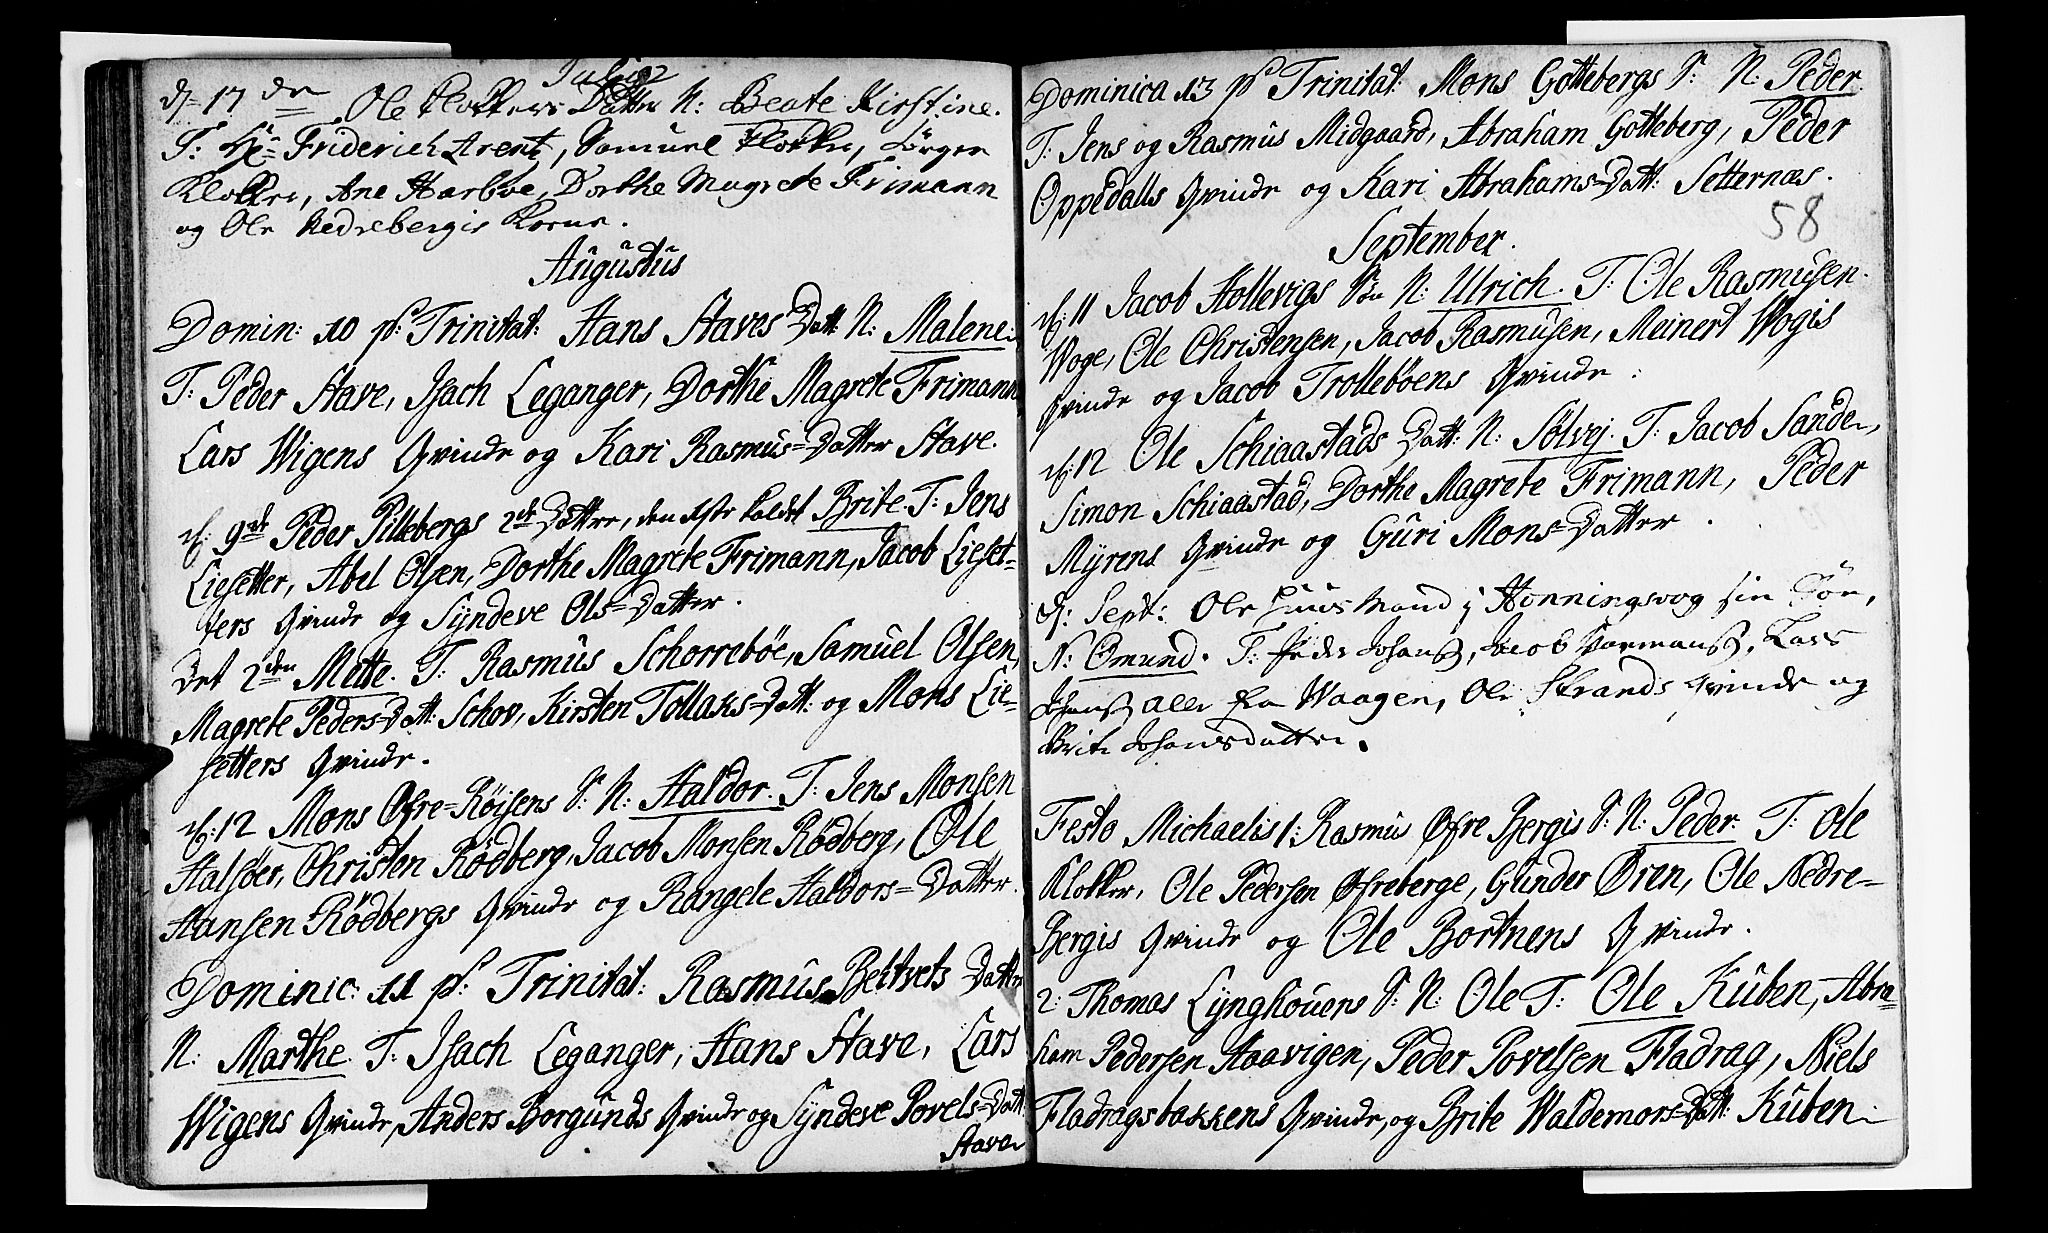 Julius
d= 17 den Ole Klokkers Datter N: Beate Kirstine.
T: Hr= Friderich Arent, Samuel Klokker, Jörgen
Klokker, Ane Harboe, Dorthe Magrete Frimann
og Ole Nedrebergis Kone.
Augustus
Domin: 10 p: Trinitat: Hans Staves Datt: N: Malene.
T: Peder Stave, Isach Leganger, Dorthe Magrete Frimann
Lars Wigens Qvinde og Kari Rasmus=Datter Stave.
d: 9de Peder Pillebergs 2de Døttre, den kaldet Brite. T: Jens
Liesetter, Abel Olsen, Dorthe Magrete Frimann, Jacob Lieset=
ters Qvinde og Syndeve Ols=Datter.
Det 2den Mette. T: Rasmus Schorreböe, Samuel Olsen,
Magrete Peders=Datt: Schov, Kirsten Tollaks=Datt: og Mons Lie=
setters Qvinde.
d: 12 Mons Øfre=Röisens S: N: Haldor. T: Jens Monsen
Halsöer, Christen Rödberg, Jacob Monsen Rödberg, Ole
Hansen Rödbergs Qvinde og Rangele Haldors=Datter.
Dominic: 11 p: Trinitat: Rasmus Bektvets Datter
N: Marthe. T: Isach Leganger, Hans Stave, Lars
Wigens Qvinde, Anders Borgunds Qvinde og Syndeve Povels=Datt:
Stave
Dominica 13 p Trinitat: Mons Gottebergs S: N: Peder.
T: Jens og Rasmus Midgaard, Abraham Gotteberg, Peder
Oppedalls Qvinde og Kari Abrahams=Datt: Setternæs.
58
September.
d: 11 Jacob Hollevigs Sn N: Ulrich. T: Ole Rasmusen
Woge, Ole Christensen, Jacob Rasmusen, Meinert Wogis
Qvinde og Jacob Trolleböens Qvinde.
d: 12 Ole Schiaastads Datt: N: Sölvej. T: Jacob Sande,
Simon Schiaastad, Dorthe Magrete Frimann, Peder
Myrens Qvinde og Guri Mons=Datter.
d: Sept: Ole Huusmand i Honningsvog sin Sön,
N: Omund. T: Peder Johans, Jacob, Lars
Johans alle fra Waagen, Ole Strands Qvinde og
Brite Johansdatter.
Festo Michaelis 1: Rasmus Øfre Bergis S: N: Peder. T: Ole
Klokker, Ole Pedersen Øfreberge, Gunder Øren, Ole Nedre=
Bergis Qvinde og Ole Bortnens Qvinde.
2: Thomas Lynghouers S: N: Ole T: Ole Kuben, Abra=
ham Pedersen Haavigen, Peder Povelsen Fladrag, Niels
Fladragsbakkens Qvinde, og Brite Waldemors=Datt: Kuben.